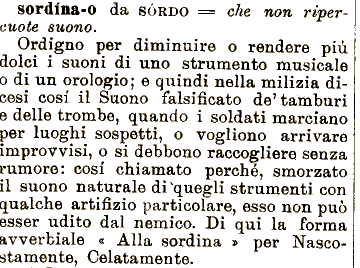 sordína-o da SÓRDO = che non riper-
cuote suono.
Ordigno per diminuire o rendere più
dolci i suoni di uno strumento musicale
o di un orologio; e quindi nella milizia di-
cesi cosí il Suono falsificato de' tamburi
e delle trombe, quando i soldati marciano
per luoghi sospetti, o vogliono arrivare
improvvisi, o si debbono raccogliere senza
rumore: cosí chiamato perché, smorzato
il suono naturale di quegli strumenti con
qualche artifizio particolare, esso non può
esser udito dal nemico. Di qui la forma
avverbiale « Alla sordina » per Nasco-
stamente, Celatamente.